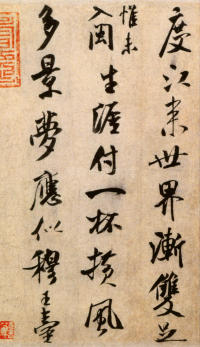 度江来世界漸雙足
惟未
入閩生涯付一杯橫風
多景夢應似穆王臺